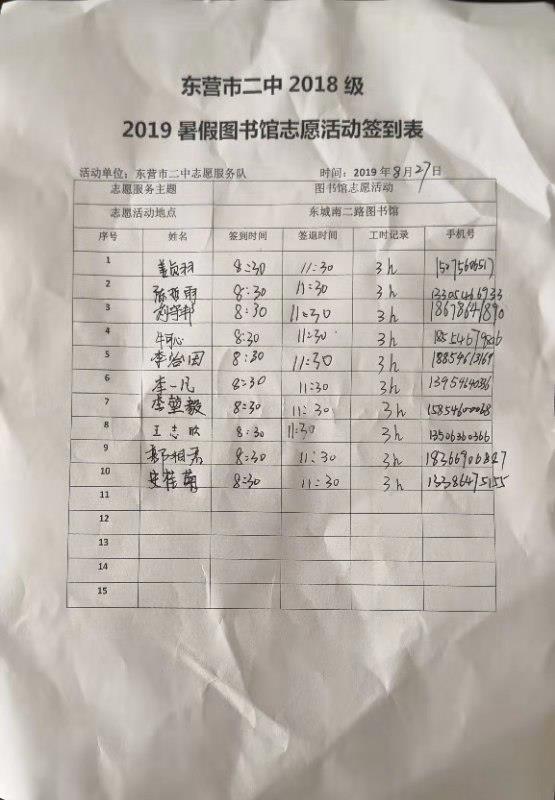 东营市二中 2018 级
2019 暑假图书馆志愿活动签到表
活动单位：东营市二中志愿服务队 时间：2019 年 8 月 27 日
志愿服务主题 图书馆志愿活动
志愿活动地点 东城南二路图书馆
序号 姓名 签到时间 签退时间 工时记录 手机号
1 姜贞羽 8:30 11:30 3h
2 8:30 11:30 3h 13305466933
3 8:30 11:30 3h 18678641890
4 8:30 11:30 3h
5 李治国 8:30 11:30 3h
6 李一凡 8:30 11:30 3h
7 李堃毅 8:30 11:30 3h
8 王志欣 8:30 11:30 3h 13506360366
9 8:30 11:30 3h
10 8:30 11:30 3h 13386475155
11
12
13
14
15